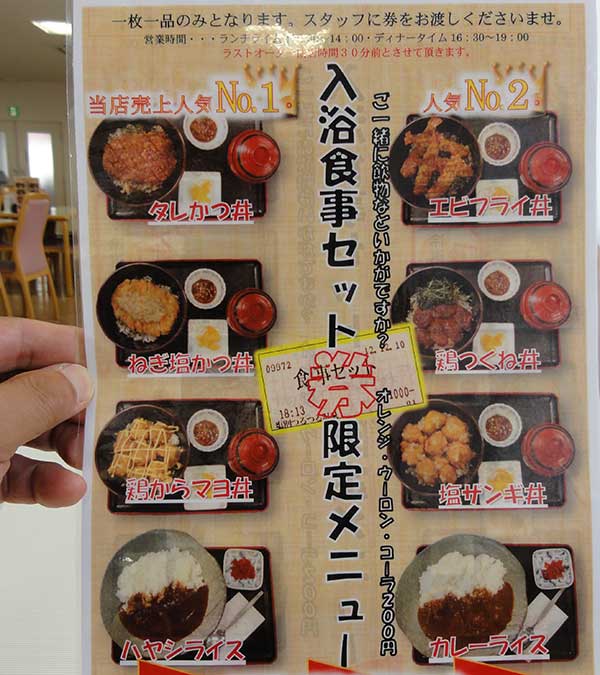 一枚一品のみとなります。スタッフに券をお渡しくださいませ。
営業時間・・・ランチライム 14：00・ディナータイム16：30～19：00
ラストオー 時間３０分前とさせて頂きます。
当店売上人気No.1．
人気No.2．
入浴食事セット券限定メニュー
ご一緒に飲物などいかがですか？　オレンジ・ウーロン・コーラ200円
タレかつ丼
エビフライ丼
ねぎ塩かつ丼
鶏つくね丼
09972
12.12.10
食事セット
18:13
1000-
鶏からマヨ丼
塩サンギ丼
ハヤシライス
カレーライス